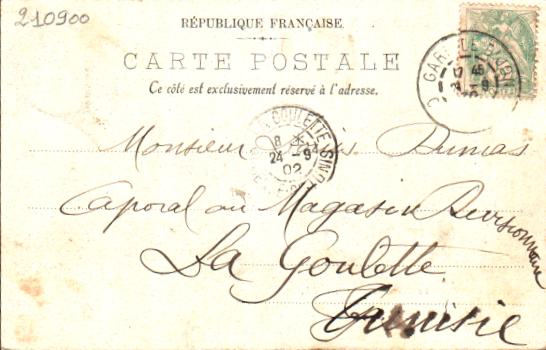 210900
RÉPUBLIQUE FRANÇAISE.
CARTE POSTALE
Ce côté est exclusivement réservé à l'adresse.
GARE
LA GOULETTE
8
24 - 9
02
Monsieur Dumas
Caporal au Magasin
La Goulette
Tunisie